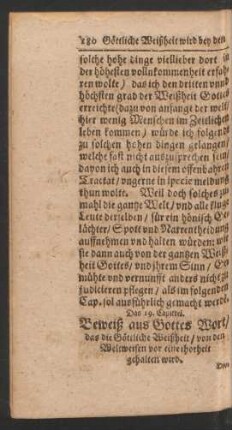 180 Göttliche Weißheit wird bey den
solche hohe dinge viellieber dort in
der höhesten vollnkommenheit erfah
ren wolte / das ich den dritten vnnd
höchsten grad der Weißheit Gottes
erreichte (dazu von anfange der welt /
hier wenig Menschen im Zeitlichen
leben kommen / würde ich folgends
zu solchen hohen dingen gelangen /
welche fast nicht auszusprechen sein /
davon ich auch in diesem offenbahren
Tractat / vngerne in specie meldung
thun wolte. Weil doch solches
mahl die gantze Welt / vnd alle kluge
Leute derselben / für ein hönisch Ge
lächter / Spott vnd Narrentheidung
auffnehmen vnd halten würdem; wie
sie dann auch von der gantzen Weiß
heit Gottes / vnd jhrem Sinn /
mühte vnd vernunfft anders nicht zu
judiciren pflegen / als im folgenden
Cap. sol ausführlich gemacht werdē.
Das 19. Capittel.
Beweiß aus Gottes Wort /
das die Göttliche Weißheit / von den
Weltweisen vor eine thorheit
gehalten wird.